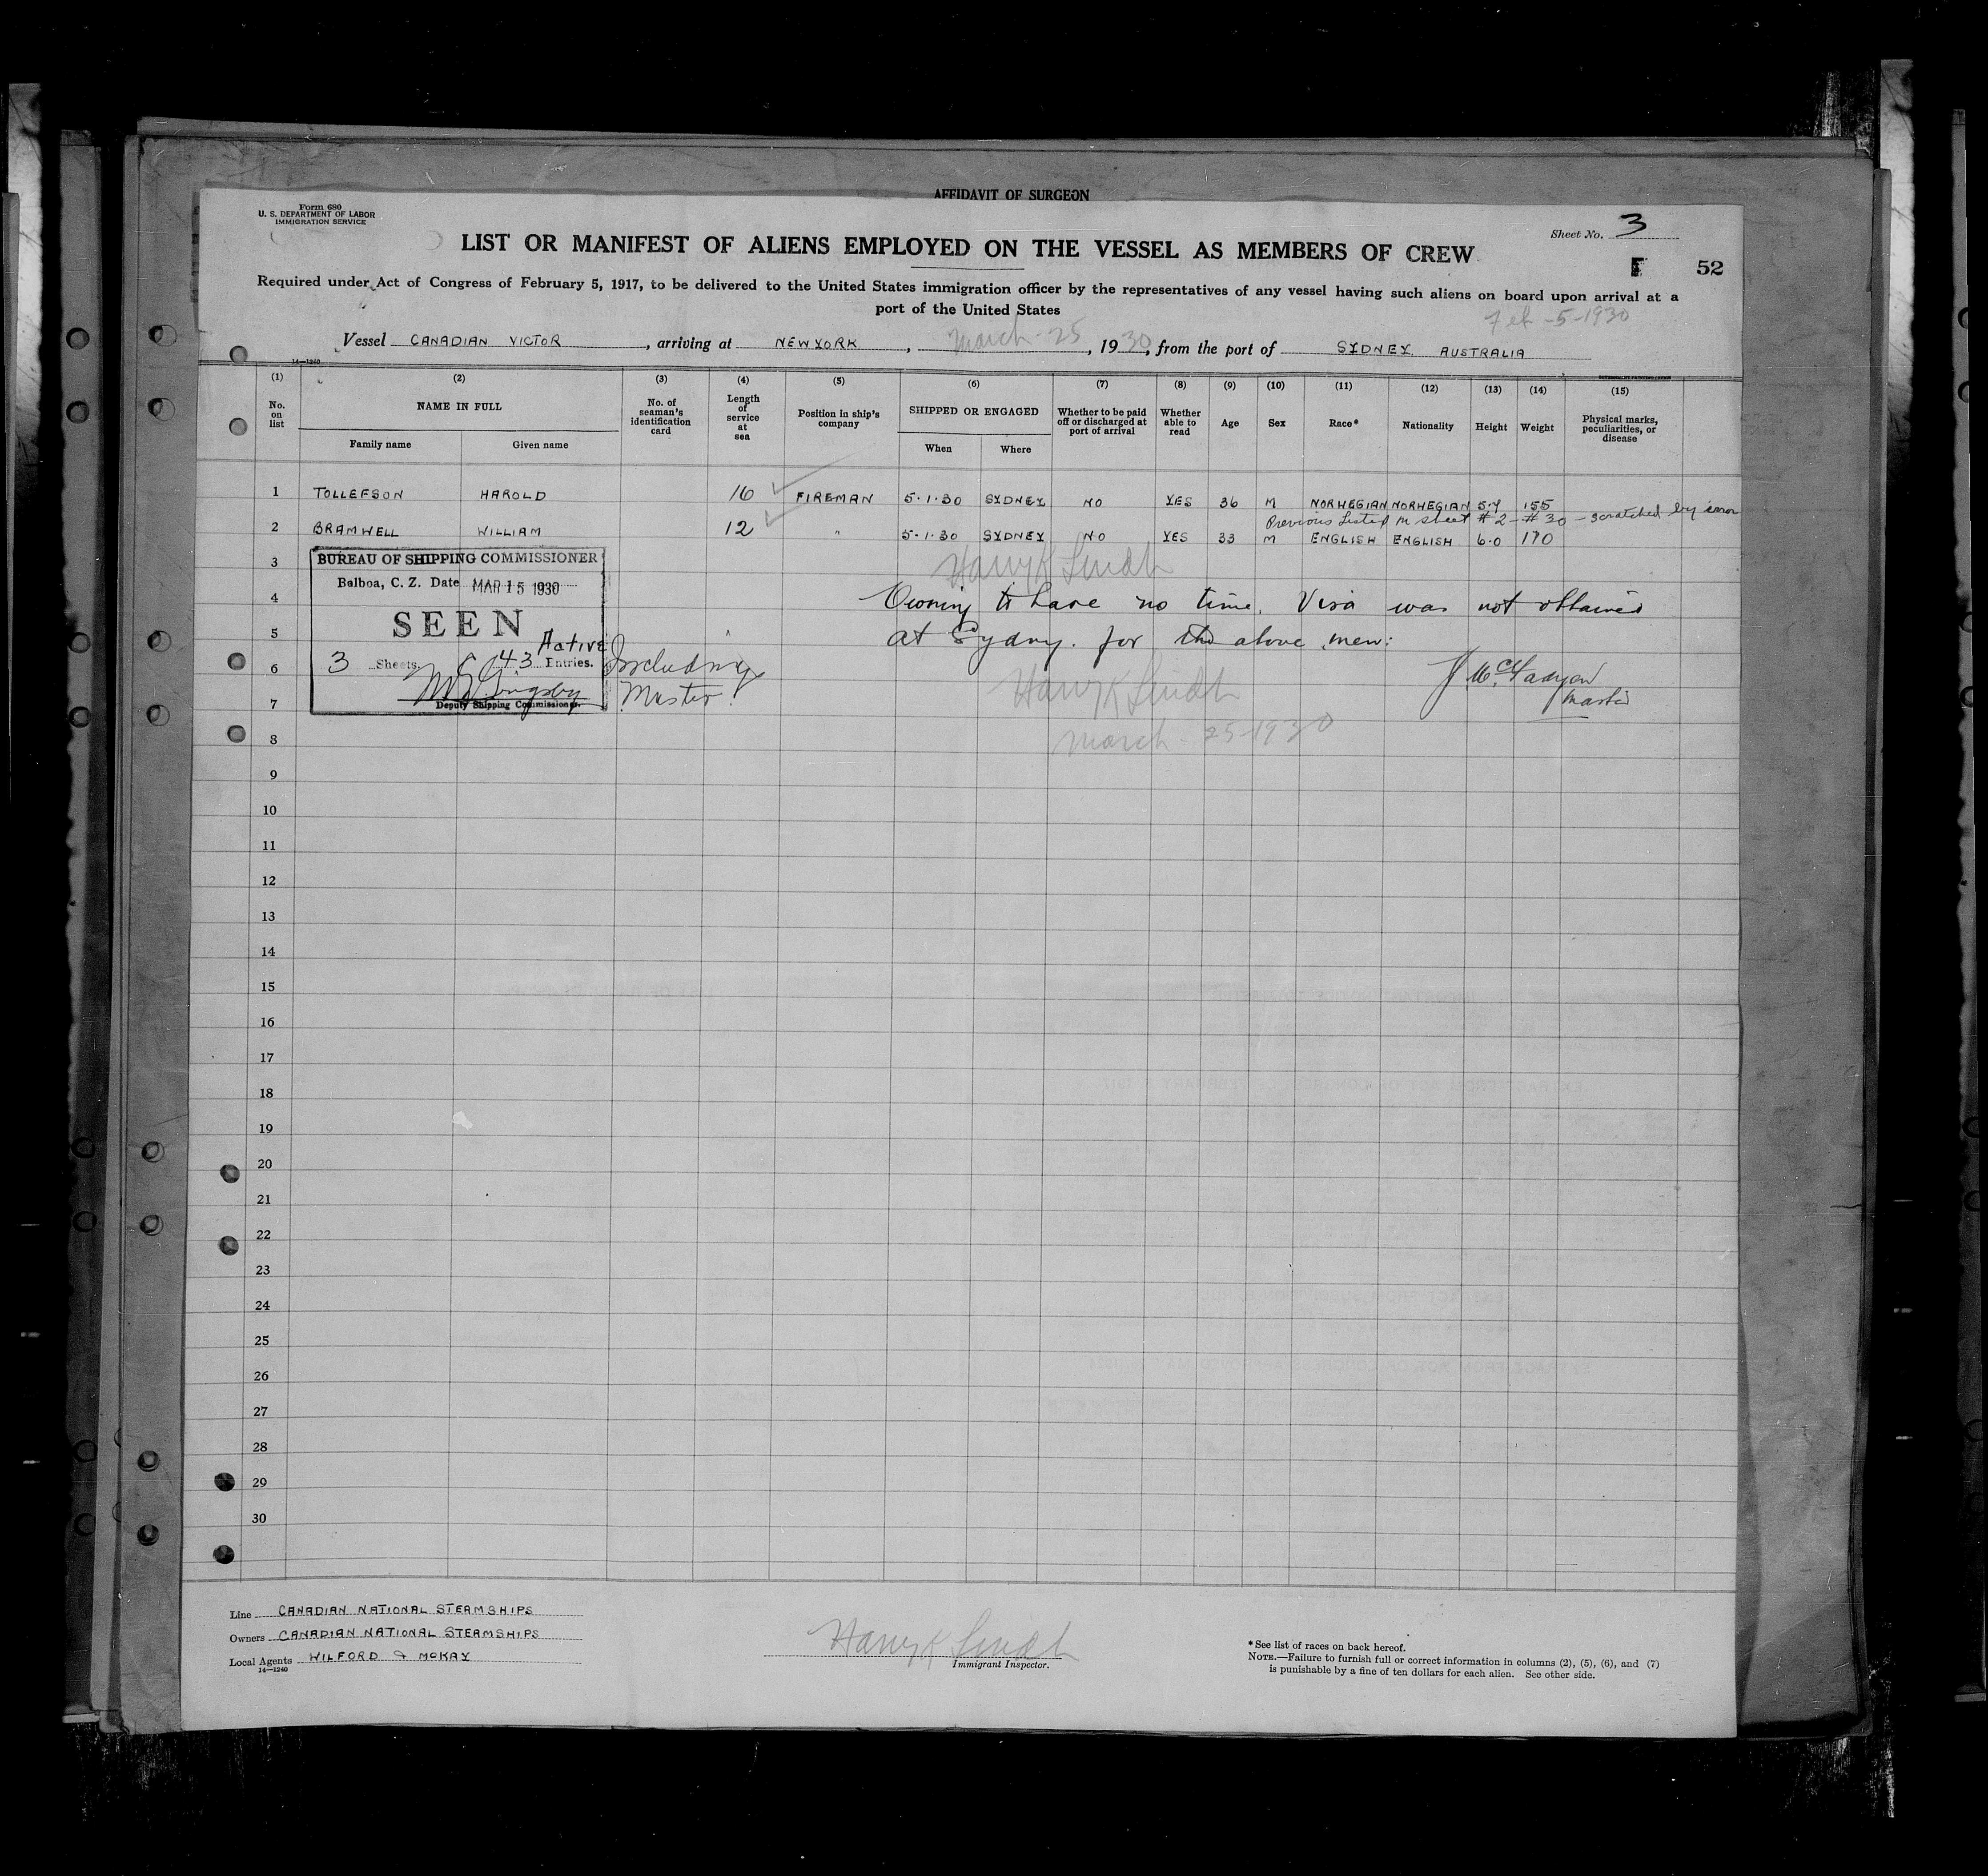 AFFIDAVIT OF SURGEON
Form 680
U. S. DEPARTMENT OF LABOR
IMMIGRATION SERVICE
Sheet No. 3
LIST OR MANIFEST OF ALIENS EMPLOYED ON THE VESSEL AS MEMBERS OF CREW
F 52
Required under Act of Congress of February 5, 1917, to be delivered to the United States immigration officer by the representatives of any vessel having such aliens on board upon arrival at a
port of the United States
Feb -5-1930
Vessel CANADIAN VICTOR, arriving at NEW YORK, March-25, 1930, from the port of SYDNEY AUSTRALIA
14—1240
(1) (2) (3) (4) (5) (6) (7) (8) (9) (10) (11) (12) (13) (14) (15)
No. on list
NAME IN FULL
Family name Given name
No. of seaman's identification card
Length of service at sea
Position in ship's company
SHIPPED OR ENGAGED
When Where
Whether to be paid off or discharged at port of arrival
Whether able to read
Age
Sex
Race*
Nationality
Height
Weight
Physical marks, peculiarities, or disease
1 TOLLEFSON HAROLD 16 FIREMAN 5·1·30 SYDNEY NO YES 36 M NORWEGIAN NORWEGIAN 5·7 155
Previous Listed in sheet #2 - #30 - scratched by error
2 BRAMWELL WILLIAM 12 " 5·1·30 SYDNEY NO YES 33 M ENGLISH ENGLISH 6·0 170
BUREAU OF SHIPPING COMMISSIONER
Balboa, C. Z. Date MAR 15 1930
SEEN
Active
3 Sheets, 43 Entries. Including
Master
Deputy Shipping Commissioner.
3
Harry K Lindh
4 Owning to have no time. Visa was not obtained
5 at Sydny. for the above men:
6
Harry K Lindh
J McFadyen
Master
7
8
March - 25-1930
9
10
11
12
13
14
15
16
17
18
19
20
21
22
23
24
25
26
27
28
29
30
Line CANADIAN NATIONAL STEAMSHIPS
Owners CANADIAN NATIONAL STEAMSHIPS
Local Agents WILFORD & McKAY
14—1240
Harry K Lindh
Immigrant Inspector.
*See list of races on back hereof.
NOTE.—Failure to furnish full or correct information in columns (2), (5), (6), and (7)
is punishable by a fine of ten dollars for each alien. See other side.